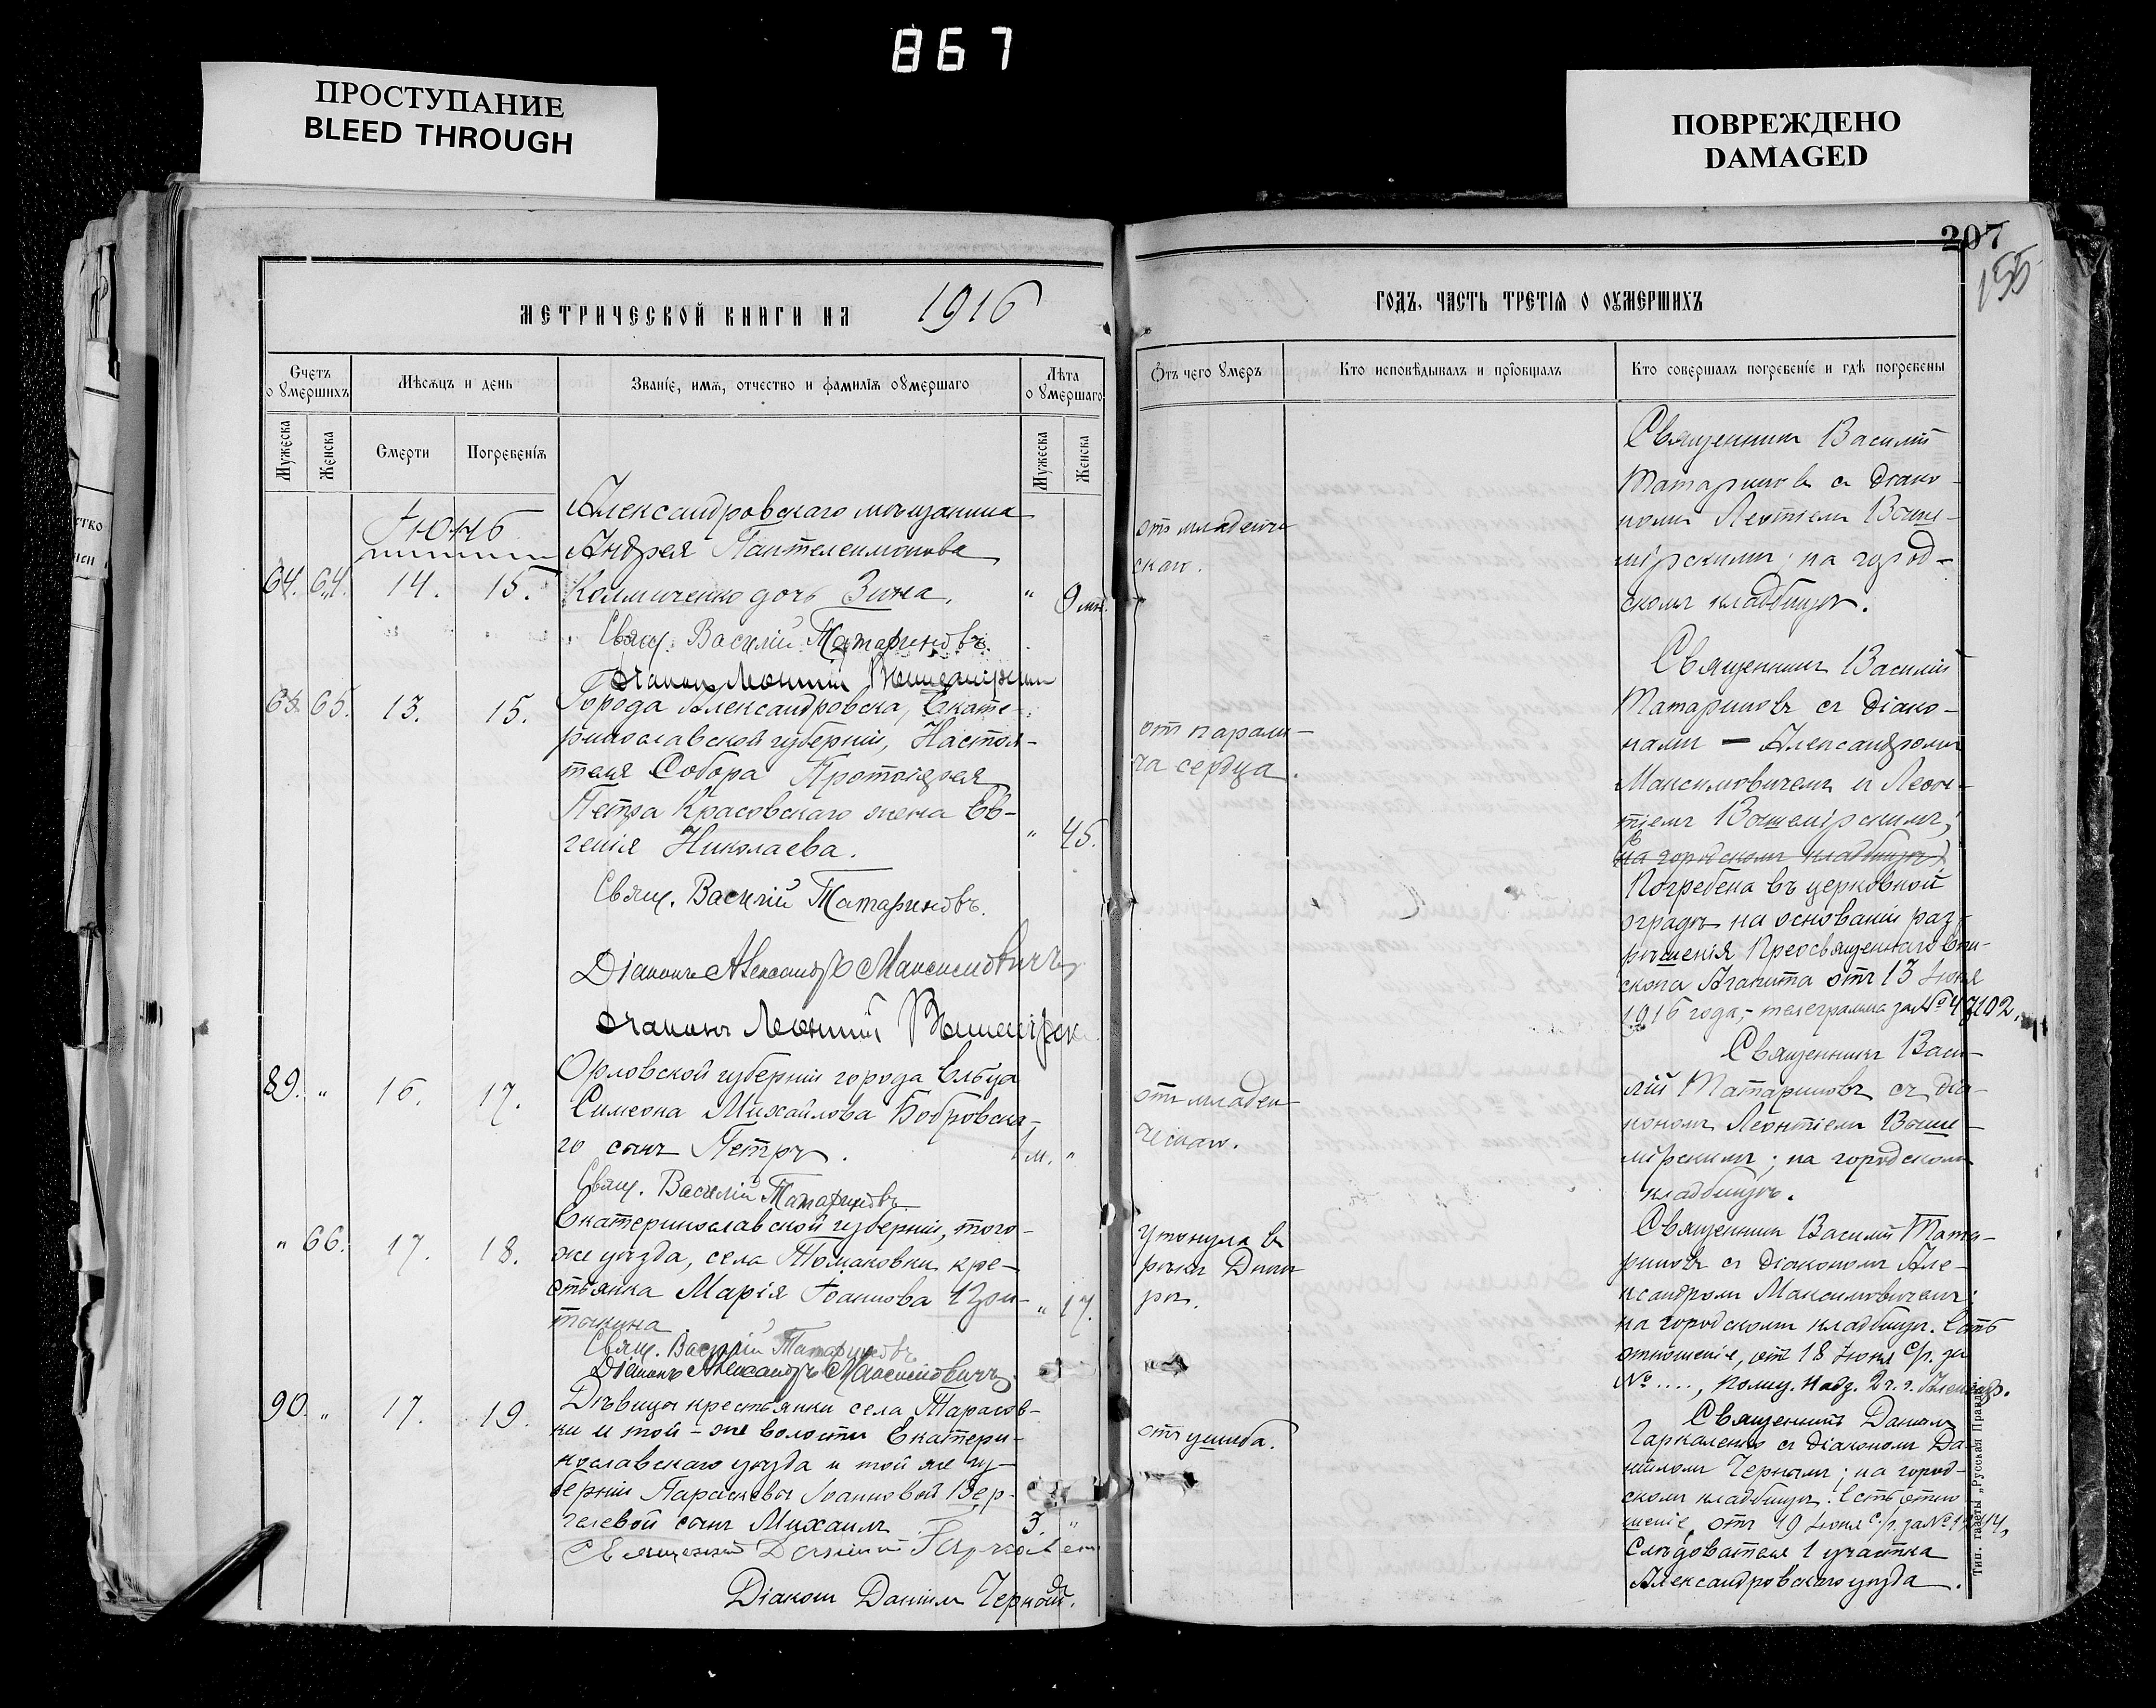 867
ПРОСТУПАНИЕ
BLEED THROUGH
ПОВРЕЖДЕНО
DAMAGED
207
155
МЕТРИЧЕСКОЙ КНИГИ НА 1916
ГОДЪ, ЧАСТЬ ТРЕТІЯ О ОУМЕРШИХЪ
Счетъ о умершихъ
Мѣсяцъ и день
Званіе, имя, отчество и фамилія оумершаго
Лѣта о умершаго
Мужеска
Женска
Смерти
Погребенія
Мужеска
Женска
Отъ чего умеръ
Кто исповѣдывалъ и пріобщалъ
Кто совершалъ погребеніе и гдѣ погребены
Іюнь
64. 64. 14. 15.
Александровскаго мѣщанина
Андрея Пантелеимонова
Колмиченко дочь Зина.
" 9 мѣс.
Свящ. Василій Татариновъ.
Діаконъ Леонтій
от младенче
скаго.
Священникъ Василій
Татариновъ съ діако-
номъ Леонтіемъ Воше-
мірскимъ; на город-
скомъ кладбищѣ.
65. 13. 15.
Города Александровска, Екате-
ринославской губерніи, Настоя-
теля Собора Протоіерея
Петра Красовскаго жена Ев-
генія Николаева.
" 45.
Свящ. Василій Татариновъ.
Діаконъ Александръ Максимовичъ
Діаконъ Леонтій
от парали-
ча сердца.
Священникъ Василій
Татариновъ съ діако-
нами - Александромъ
Максимовичемъ и Леон-
тіемъ Вошемірскимъ;
на городскомъ кладбищѣ
Погребена въ церковной
оградѣ на основаніи раз-
рѣшенія Преосвященнаго Епи-
скопа Агапита отъ 13 Іюня
1916 года, - телеграмма за №
89. " 16. 17.
Орловской губерніи города Ельца
Симеона Михайлова Бобровска-
го сынъ Петръ.
м. "
Свящ. Василій Татариновъ
отъ младен-
ческаго.
Священникъ Васи-
лій Татариновъ съ діа-
кономъ Леонтіемъ Воше-
мірскимъ; на городскомъ
кладбищѣ.
" 66. 17. 18.
Екатеринославской губерніи, того-
же уѣзда, села Томаковки кре-
стьянка Марія Іоаннова
" 17.
Свящ. Василій Татариновъ
Діаконъ Александръ Максимовичъ
Утонула въ
рѣкѣ Днѣп
рѣ.
Священникъ Василій Тата-
риновъ съ діакономъ Але-
ксандромъ Максимовичемъ;
на городскомъ кладбищѣ. Есть
отношеніе, отъ 18 Іюня с/г. за
№ ...., полиц. надз. 2 ч. г. Александр.
90. " 17. 19.
Дѣвицы крестьянки села Тарасов-
ки и той-же волости Екатери-
нославскаго уѣзда и той же гу-
берніи Параскевы Іоанновой Вер-
гелевой сынъ Михаилъ
3. "
Священникъ Даніилъ
Діаконъ Даніилъ Черный.
отъ ушиба.
Священникъ Даніилъ
Гаркаленко съ діакономъ Да-
ніиломъ Чернымъ; на город-
скомъ кладбищѣ. Есть отно
шеніе, отъ 19 Іюня с/г. за №
Слѣдователя 1 участка
Александровскаго уѣзда.
Тип. газеты „Русская Правда".